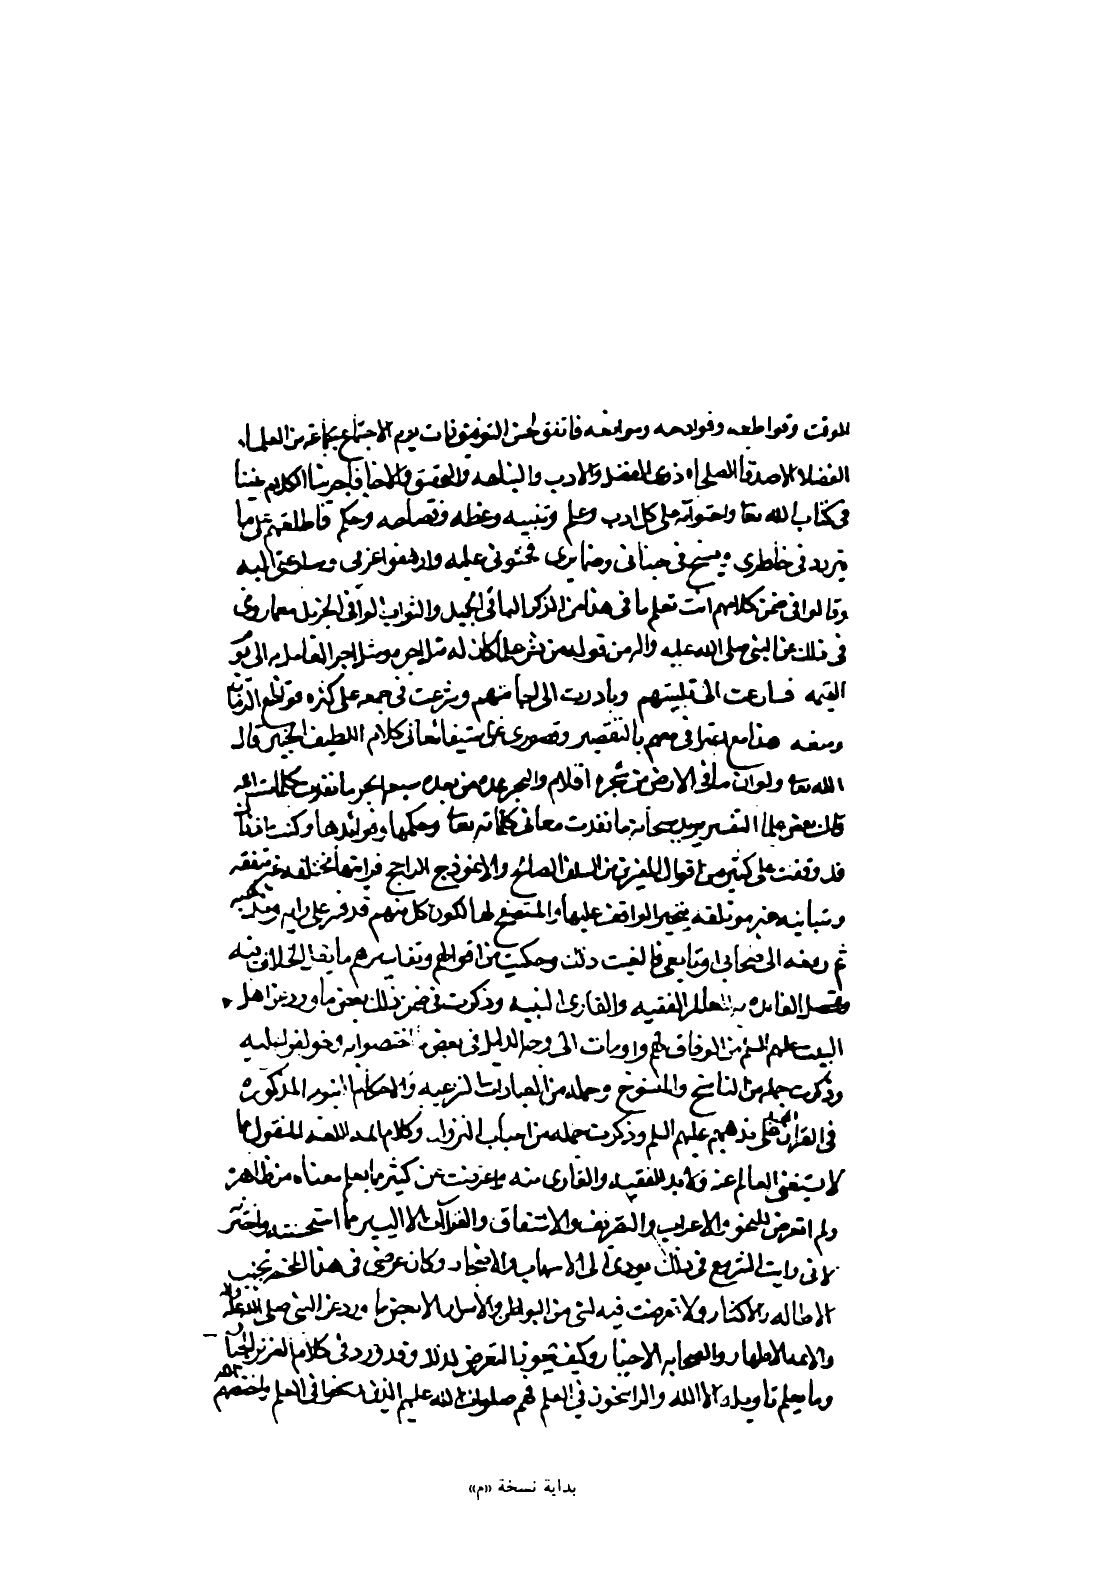 الوقت وقواطعه وفوادحه وموانعه فاتفق لحسن التوفيق فات يوم الاجتماع بجماعة من العلماء
الفضلا الاصدقا الصلحاء ذوى الفضل والادب والنباهه والتحقيق فاجرينا الكلام بيننا
فى كتاب الله تعا واحتوائه على كل ادب وعلم وتنبيه وعظه وقصاصه وحكم فاطلعتهم على ما
يتردد فى خاطرى ويسنح فى جنانى وضمايرى فحثونى عليه وارهفوا عزمى وساعتى اليه
وقالوا فى ضمن كلامهم انت تعلم ما فى هذا من الذكر الباقى الجميل والثواب الوافى الجزيل مع ما روى
فى ذلك عن النبى صلى الله عليه واله من قوله من نشر علما كان له مثل اجر من عمل به الى يوم
القيمه فسارعت الى تلبيتهم وبادرت الى اجابتهم وشرعت فى جمعه على كثره موانع الزمان
ومنعه هذا مع اعترافى معهم بالتقصير وقصورى عن استيفا معانى كلام اللطيف الخبير قال
الله تعا ولو ان ما فى الارض من شجره اقلام والبحر يمده من بعده سبعه ابحر ما نفدت كلمات الله
قال بعض علما التفسير يريد سبحانه ما نفدت معانى كلماته تعا وحكمها وفوائدها وكنت اذ ذاك
قد وقفت على كثير من اقوال المفسرين من السلف الصالح والانموذج الراجح فرايتها مختلفه غير متفقه
ومتباينه غير موتلفه يتحير الواقف عليها والمتصفح لها لكون كل منهم قد فسر على رايه ومذهبه
ثم رفعه الى صحابى او تابعى فالغيت ذلك وحكيت من اقوالهم وتفاسيرهم ما يقل الخلاف فيه
وتحصل الفايده به للعالم الفقيه والقارى النبيه وذكرت فى ضمن ذلك بعض ما ورد عن اهل
البيت عليهم السلم من الوفاق لهم واومات الى وجه الدليل فى بعض ما اختصوا به وخولفوا فيه
وذكرت جمله من الناسخ والمنسوخ وجمله من العبادات الشرعيه والاحكام النبويه المذكوره
فى القران على مذهبهم عليهم السلم وذكرت جمله من اسباب النزول وكلام ائمه اللغه المنقول مما
لا يستغنى العالم عنه ولابد للفقيه والقارى منه واعرضت عن كثير ما يعلم معناه من ظاهره
ولم اتعرض للنحو والاعراب والتصريف والاشتقاق والقراآت الا اليسير مما استحسنته واخترته
لانى رايت الشروع فى ذلك يودى الى الاسهاب والاضجار وكان غرضى فى هذا المختصر تجنب
الاطاله والاكثار ولا تعرضت فيه لشى من البواطن والاسرار الا بعض ما ورد عن النبى صلى الله عليه واله
والائمه الاطهار والصحابه الاخيار وكيف يجوز التعرض لذلك وقد ورد فى كلام العزيز الجبار
وما يعلم تاويله الا الله والراسخون فى العلم فهم صلوات الله عليهم الذين رسخوا فى العلم واختصهم الله
بداية نسخة «م»